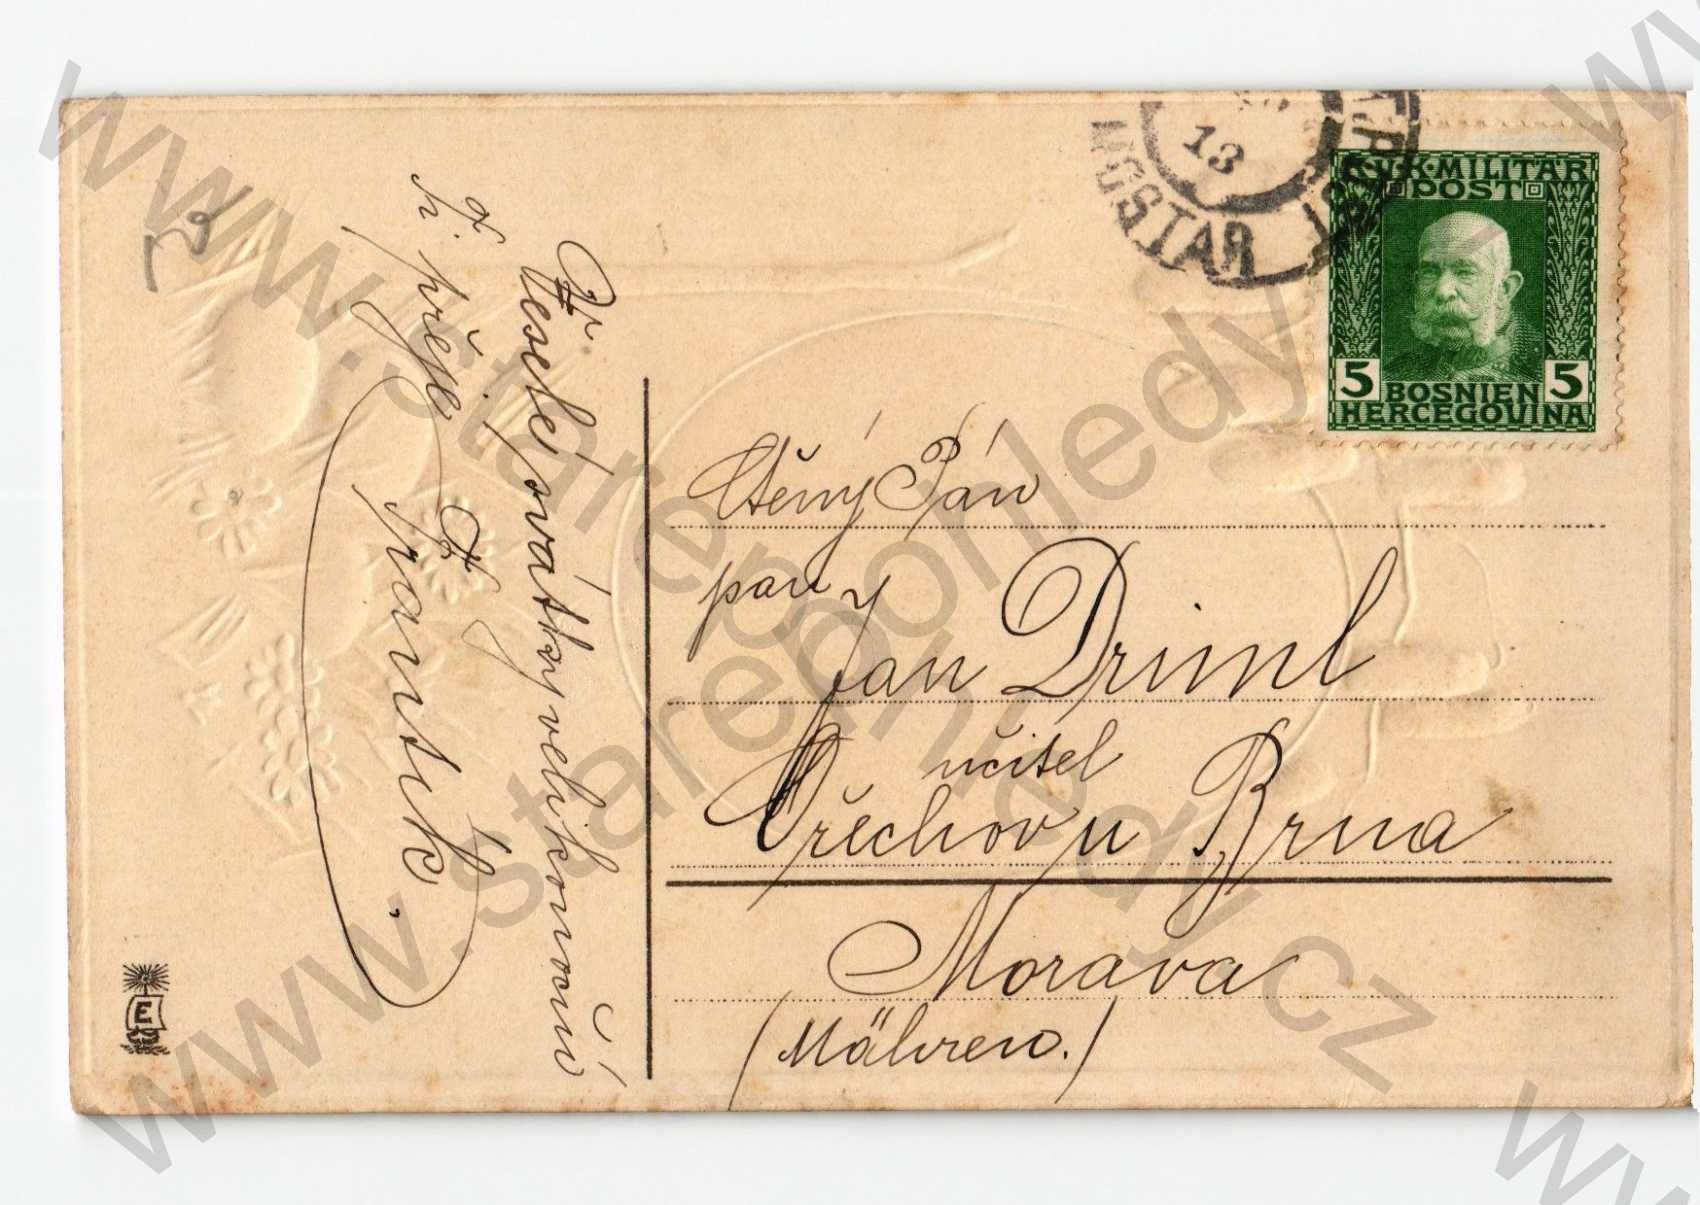 Veselé svátky velikonoční
Ti přeje
Frantík.
13
MOSTAR
K.U.K. MILITÄR
POST
5 BOSNIEN 5
HERCEGOVINA
Ctěný Pán
pan
Jan Driml
učitel
Ořechov u Brna
Morava
(Mähren.)
E
www.starepohledy.cz
www.starepohledy.cz